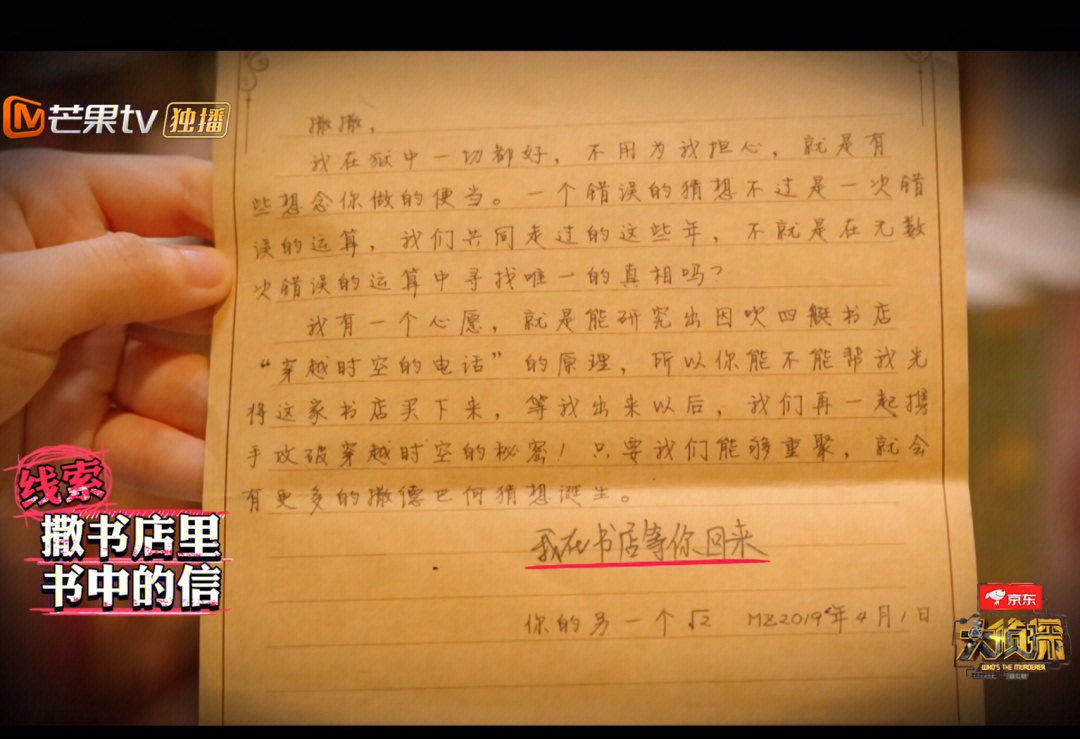 芒果tv 独播
撒撒，
我在狱中一切都好，不用为我担心，就是有
些想念你做的便当。一个错误的猜想不过是一次错
误的运算，我们共同走过的这些年，不就是在无数
次错误的运算中寻找唯一的真相吗？
我有一个心愿，就是能研究出因吹四艇书店
“穿越时空的电话”的原理，所以你能不能帮我先
将这家书店买下来，等我出来以后，我们再一起携
手攻破穿越时空的秘密！只要我们能够重聚，就会
有更多的撒德巴何猜想诞生。
我在书店等你回来
你的另一个√2 MZ2019年4月1日
线索
撒书店里
书中的信
京东
大侦探
WHO'S THE MURDERER